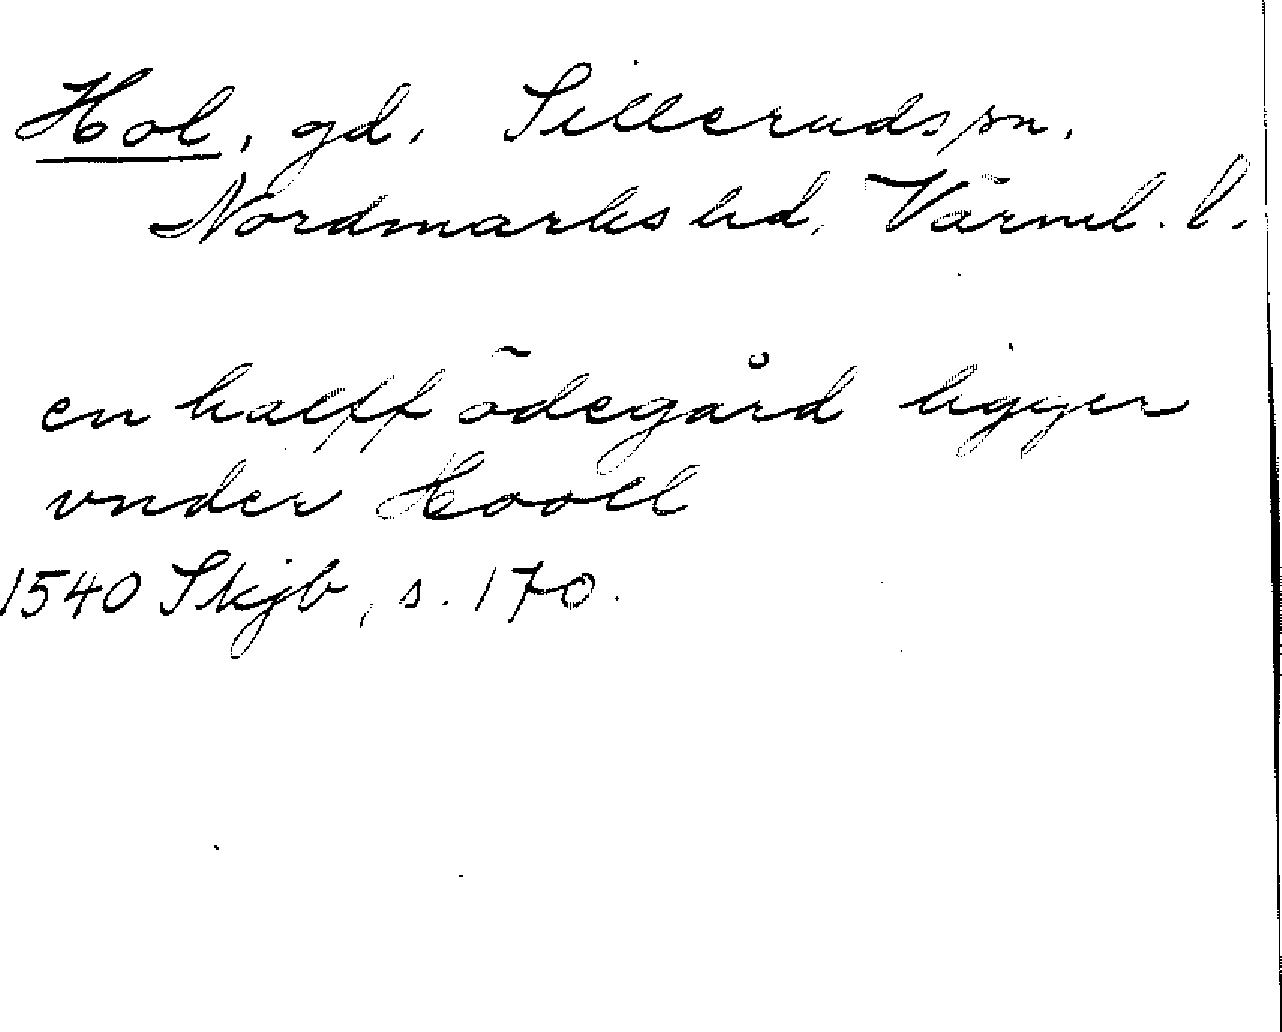 Hol, gd, Silleruds sn.
Nordmarks hd, Värml. l.
en halff ödegård ligger
vnder Hooll
1540 Skjb, s. 170.